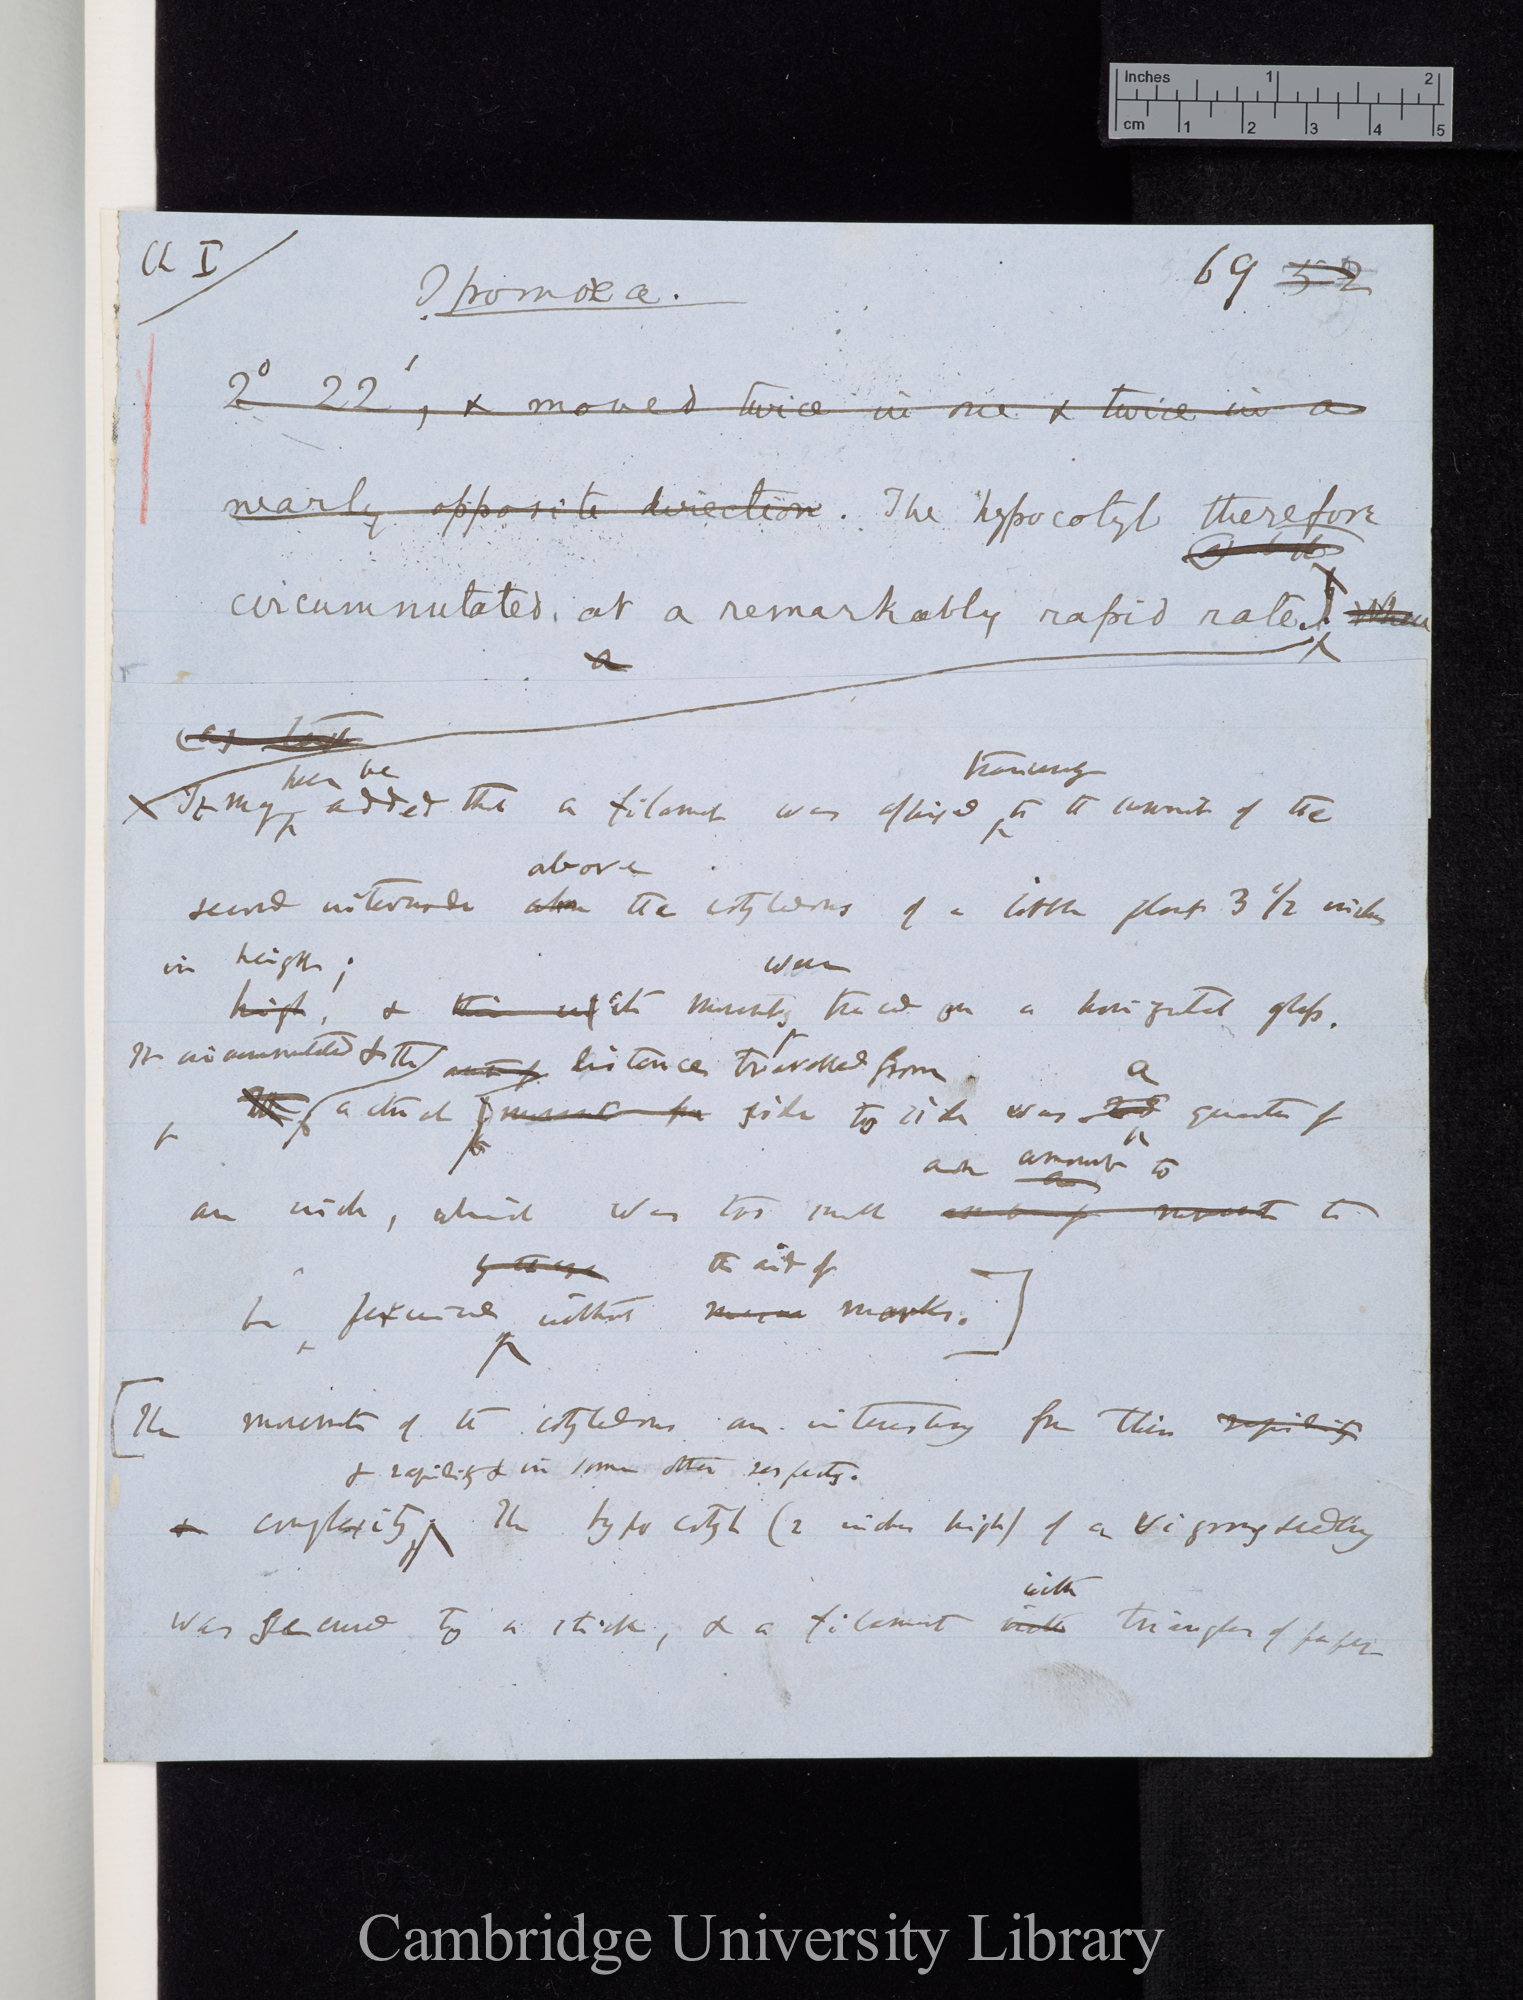 Inches 1 2
cm 1 2 3 4 5
Ch I
69 52
Ipomœa.
2° 22', & moved twice in one & twice in a
nearly opposite direction. The hypocotyl therefore
circumnutated at a remarkably rapid rate. When
a
(as
here be transversely
It may added that a filament was affixed to the summit of the
above
second internode above the cotyledons of a little plant 3 1/2 inches
in height;
were
high, & its movements traced on a horizontal glass.
It circumnutated & the distance travelled from
a
The actual movement from side to side was quarter of
an amount to
an inch, which was too small to
the aid of
be perceived without marks.]
[The movements of the cotyledons are interesting from their rapidity
& rapidity & in some other respects.
& complexity, The hypocotyl (2 inches high) of a vigorous seedling
with
was secured to a stick, & a filament with triangles of paper
Cambridge University Library